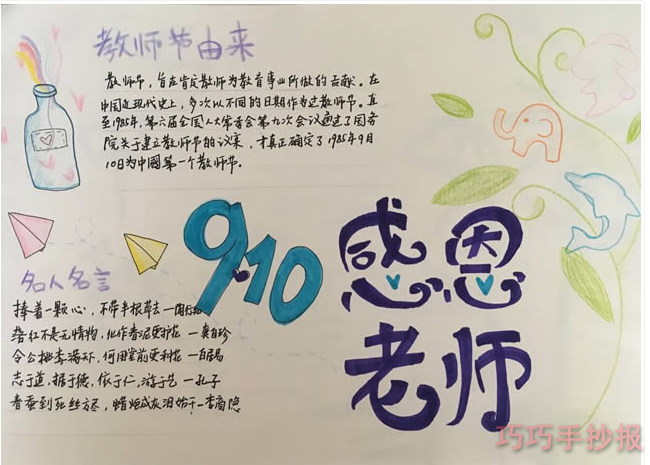 教师节由来
教师节，旨在肯定教师为教育事业所做的贡献。在
中国近现代史上，多次以不同的日期作为过教师节。直
至1985年，第六届全国人大常委会第九次会议通过了国务
院关于建立教师节的议案，才真正确定了1985年9月
10日为中國第一个教师节。
9.10
感恩
老师
名人名言
捧着一颗心，不带半根草去一陶行知
落红不是无情物，化作春泥更护花一龚自珍
令公桃李满
，何用堂前更
花一白居易
志于道，据于德，依于仁，游于艺一孔子
春蚕到死丝方尽，蜡炬成灰泪始干一李商隐
巧巧手抄报